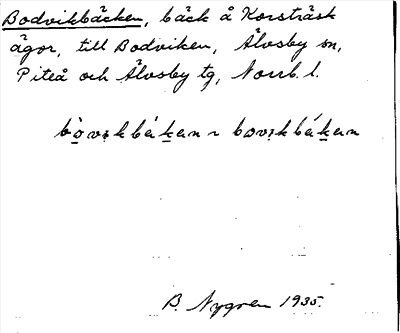 Bodvikbäcken, bäck å Korsträsk
ägor, till Bodviken, Älvsby sn,
Piteå och Älvsby tg, Norrb. l.
bòvıkbákan ~ bovıkbákan
B. Nygren 1935.